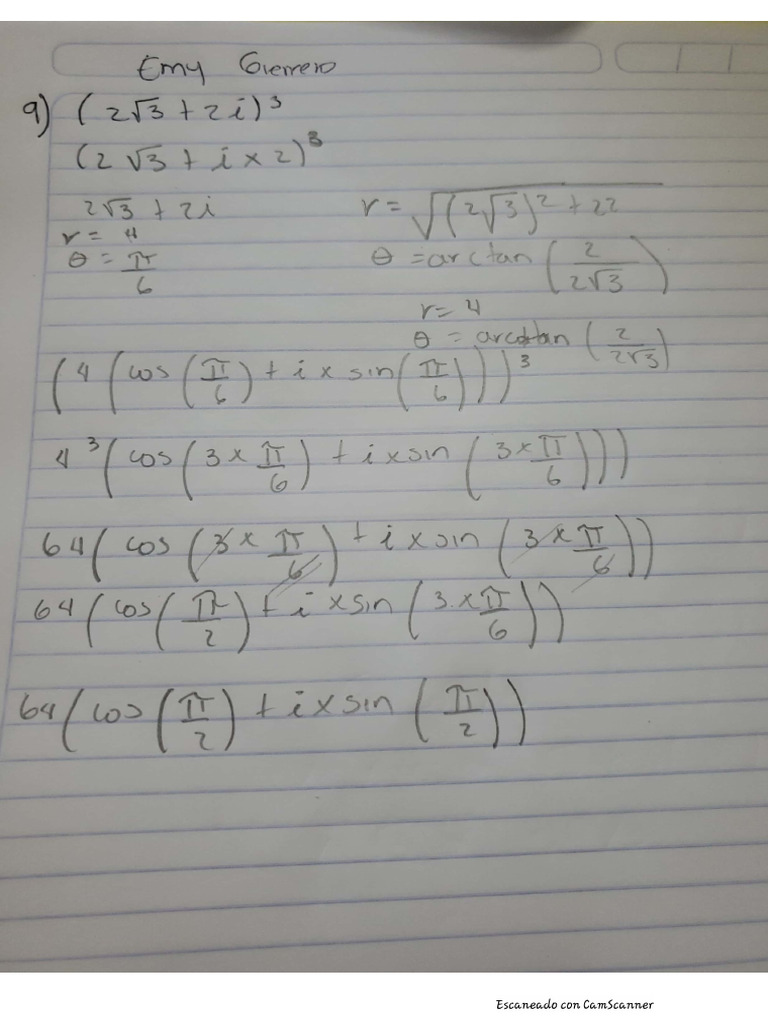 Emy Guerrero
9) (2√3 + 2i)³
(2√3 + i × 2)³
2√3 + 2i
r = √((2√3)² + 22
r = 4
θ = π/6
θ = arctan (2/2√3)
r = 4
θ = arcotan (2/2√3)
(4 (cos (π/6) + i × sin (π/6)))³
4³ (cos (3 × π/6) + i × sin (3 × π/6)))
64 (cos (3 × π/6) + i × sin (3 × π/6))
64 (cos (π/2) + i × sin (3 . × π/6))
64 (cos (π/2) + i × sin (π/2))
Escaneado con CamScanner